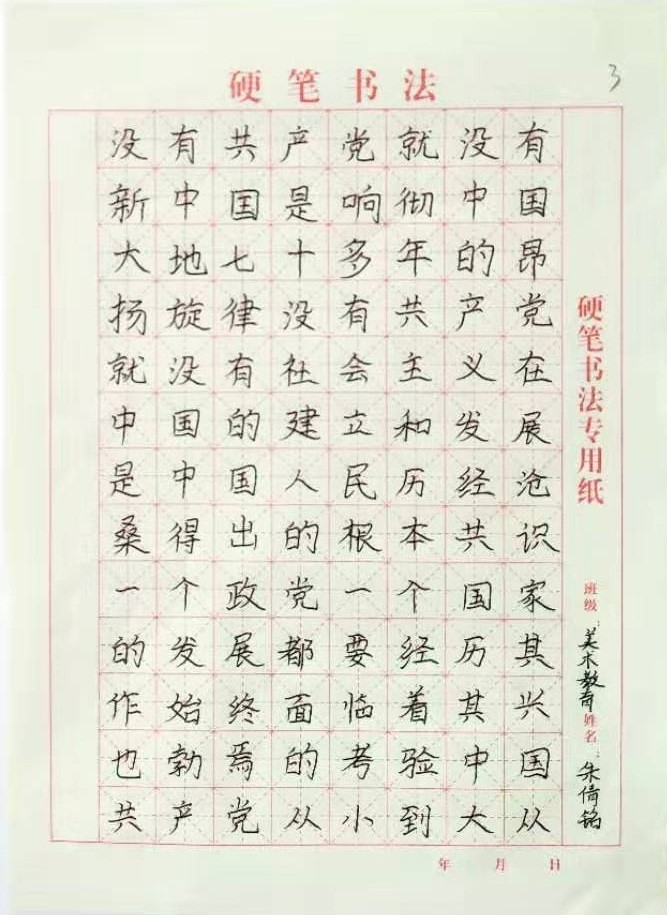 硬笔书法
3
没有共产党就没有
新中国是响彻中国
大地七十多年的昂
扬旋律没有共产党
就没有社会主义在
中国的建立和发展
是中国人民历经沧
桑得出的根本共识
一个政党一个国家
的发展都要经历其
作始终面临着其兴
也勃焉的考验中国
共产党从小到大从
硬笔书法专用纸
班级：美术教育姓名：朱倩铭
年 月 日